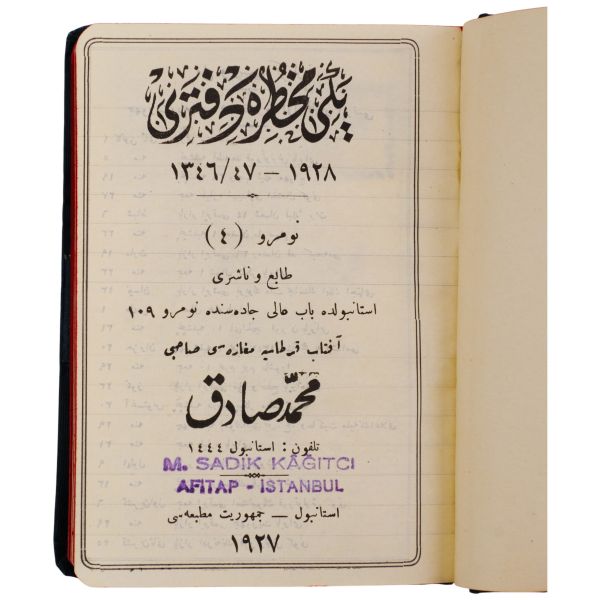 یڭی مخطره دفتری
١٣٤٦/٤٧ — ١٩٢٨
نومرو (٤)
طابع و ناشری
استانبولده باب عالی جاده‌سنده نومرو ١٠٩
آفتاب قرطاسیه مغازه‌سی صاحبی
محمّد صادق
تلفون : استانبول ١٤٤٤
M. SADIK KÂĞITCI
AFİTAP - İSTANBUL
استانبول — جمهوریت مطبعه‌سی
١٩٢٧